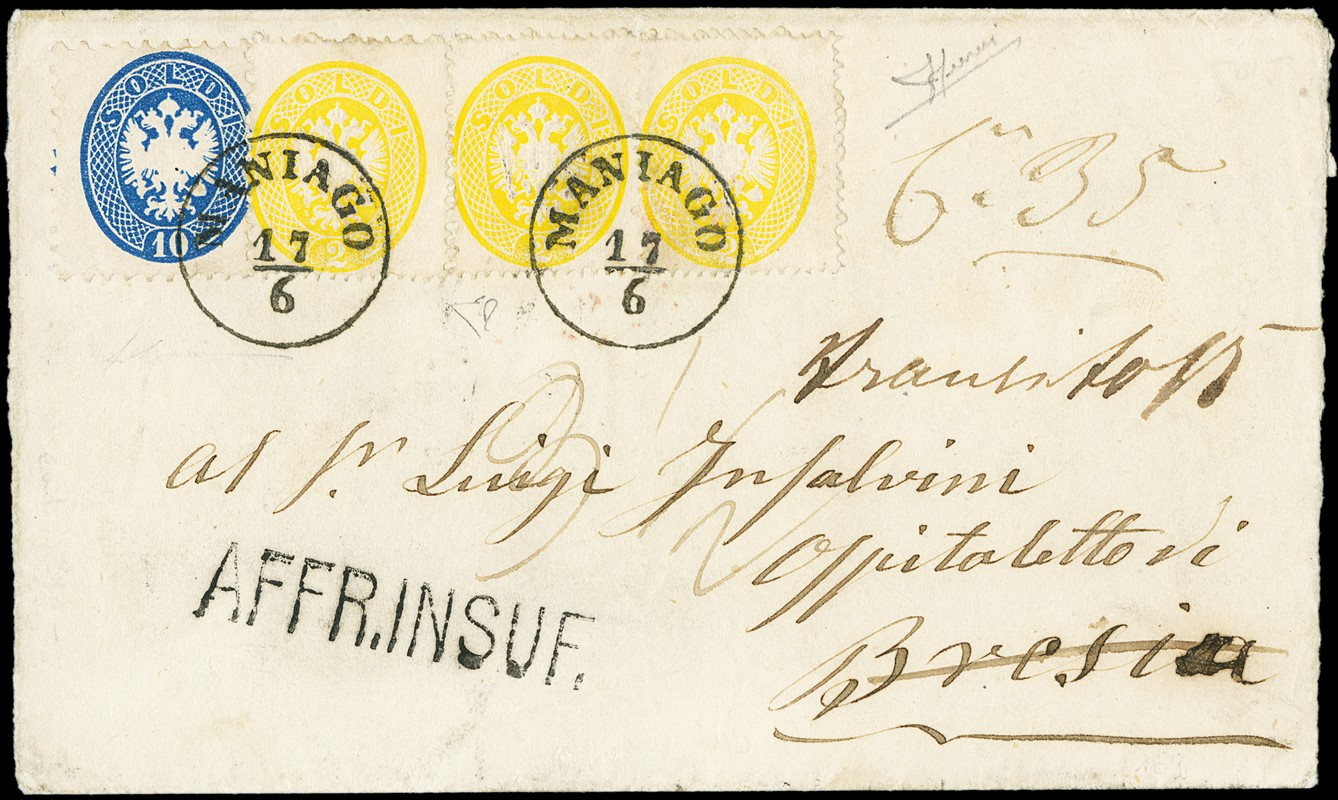 SOLDI 10
SOLDI 2
SOLDI
SOLDI 2
MANIAGO
17
6
MANIAGO
17
6
35
al Sr Luigi Insalvini
Ospitaletto di
Brescia
AFFR.INSUF.